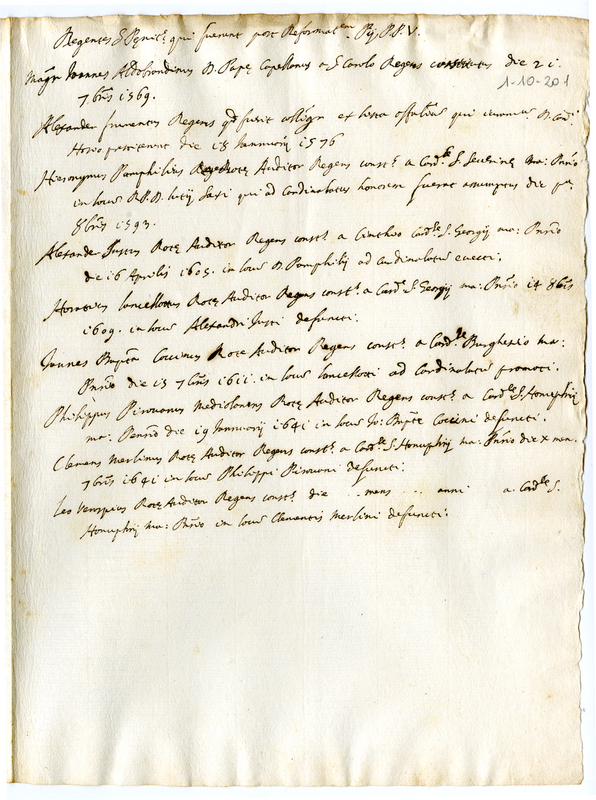 Regentes S. Pęnit.ę qui fuerunt post Reformat.em Pij P.P. V.
Magr Joannes Aldobrandinus D. Papę Capellanus a S. Carolo Regens constitutus die 21.
1-10-201
7bris 1569.
Alexander Regens qd fuit ex qui D. Card.
die 18 Januarij 1576
Hieronymus Pamphilius Rotę Auditor Regens const.s a Card.le S. Severinę ma: Pnrio
in locū R.P.D. Lutij Saxi qui ad Cardinalatus honorem fuerat assumptus die p.a
8bris 1593.
Alexander Justus Rotę Auditor Regens const.s a Cinthio Card.le S. Georgij ma: Pnrio
die 16 Aprilis 1605. in locū D. Pamphilij ad Cardinalatū evecti.
Horatius Lancellottus Rotę Auditor Regens const.s a Card. S. Georgij ma: Pnrio 14 8bris
1609. in locū Alexandri Justi defuncti.
Joannes Bapta Coccinus Rote Auditor Regens const.s a Card.le Burghesio ma:
Pnrio die 13 7bris 1611. in locū Lancellotti ad Cardinalatū promoti.
Philippus Pirouanus Mediolanens Rotę Auditor Regens const.s a Card.le S. Honuphrij
ma: Penrio die 19 Januarij 1641 in locū Jo: Bapte Coccini defuncti.
Clemens Merlinus Rotę Auditor Regens const.s a Card.le S. Honuphrij ma: Pnrio die x men.
7bris 1641 in locū Philippi Pirouani defuncti.
Leo Verospius Rotę Auditor Regens const.s die ... mens ... anni a. Card.le S.
Honuphrij ma: Pnrio in locū Clementis Merlini defuncti.